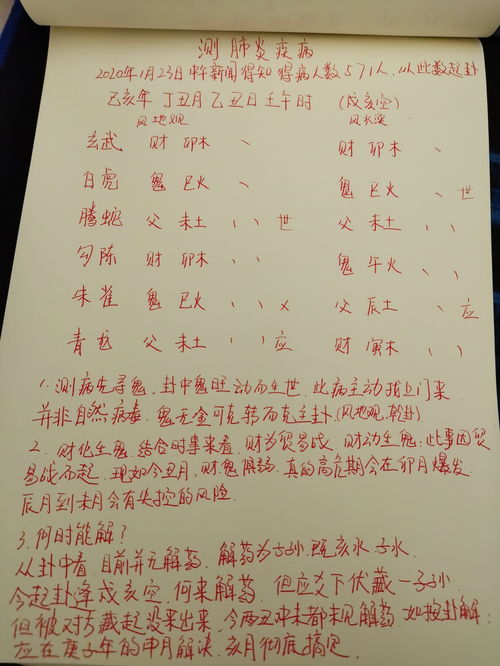 测肺炎疾病
2020年1月23日中午新闻得知得病人数571人,以此数起卦
己亥年 丁丑月 乙丑日 壬午时 (戌亥空)
风地观 风水涣
玄武 财 卯木 、 财 卯木 、
白虎 鬼 巳火 、 鬼 巳火 、世
腾蛇 父 未土 、、世 父 未土 、、
勾陈 财 卯木 、、 鬼 午火 、、
朱雀 鬼 巳火 、、 x 父 辰土 、 应
青龙 父 未土 、、应 财 寅木 、、
1. 测病先寻鬼,卦中鬼旺动而生世,此病主动找上门来
并非自然病毒,鬼无金可克转而克主卦(风地观,乾卦).
2. 财化生鬼,结合时事来看,财为贸易战,财动生鬼:此事因贸
易战而起,现如今丑月,财鬼俱弱,真的高危期会在卯月爆发,
辰月到未月会有失控的风险.
3. 何时能解?
从卦中看,目前并无解药,解药为子孙,既亥水、子水,
今起卦逢戌亥空,何来解药,但应爻下伏藏一子孙,
但被对方藏起没来出来,今两丑冲未都未见解药,如按卦解:
应在庚子年的申月解决,亥月彻底搞定.